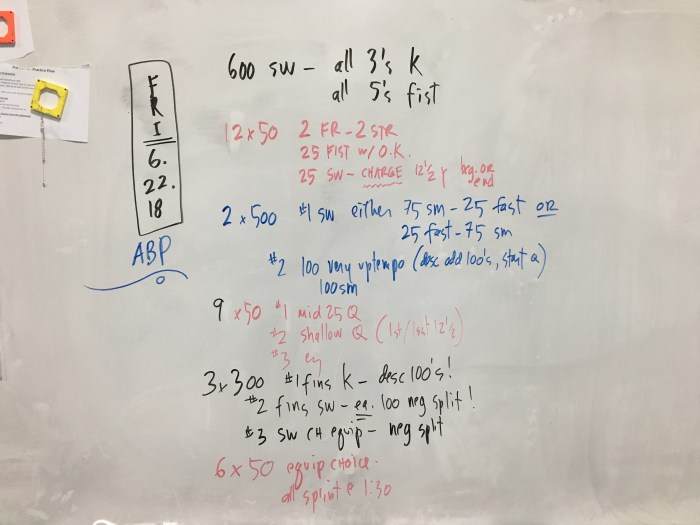 FRI
6.
22.
18
ABP
600 SW - all 3's K
all 5's fist
12 x 50 2 FR - 2 STR
25 FIST w/ O.K.
25 SW - CHARGE 12 1/2 y beg. OR
end
2 x 500 #1 SW either 75 sm - 25 fast OR
25 fast - 75 sm
#2 100 very uptempo (desc odd 100's, start Q)
100 sm
9 x 50 #1 mid 25 Q
#2 shallow Q (1st/last 12 1/2)
#3 ey
3 x 300 #1 fins K - desc 100's!
#2 fins SW - ea. 100 neg split!
#3 SW CH equip - neg split
6 x 50 equip CHOICE.
all sprint @ 1:30